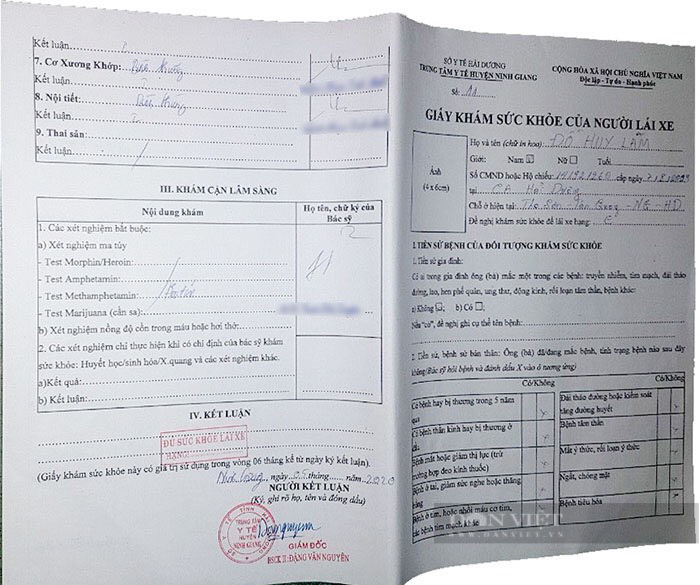 Kết luận
7. Cơ Xương Khớp: Bình thường
Kết luận
8. Nội tiết: Bình thường
Kết luận
9. Thai sản:
Kết luận
III. KHÁM CẬN LÂM SÀNG
Nội dung khám
Họ tên, chữ ký của Bác sỹ
1. Các xét nghiệm bắt buộc:
a) Xét nghiệm ma túy
- Test Morphin/Heroin:
- Test Amphetamin:
- Test Methamphetamin:
- Test Marijuana (cần sa):
b) Xét nghiệm nồng độ cồn trong máu hoặc hơi thở:
2. Các xét nghiệm chỉ thực hiện khi có chỉ định của bác sỹ khám
sức khỏe: Huyết học/sinh hóa/X.quang và các xét nghiệm khác.
a)Kết quả:
b) Kết luận:
IV. KẾT LUẬN
ĐỦ SỨC KHỎE LÁI XE
HẠNG:
(Giấy khám sức khỏe này có giá trị sử dụng trong vòng 06 tháng kể từ ngày ký kết luận).
Ninh Giang, ngày 05 tháng năm 2020
NGƯỜI KẾT LUẬN
(Ký, ghi rõ họ, tên và đóng dấu)
TRUNG TÂM
Y TẾ
HUYỆN
NINH GIANG
GIÁM ĐỐC
BSCK II: ĐẶNG VĂN NGUYÊN
SỞ Y TẾ HẢI DƯƠNG
TRUNG TÂM Y TẾ HUYỆN NINH GIANG
Số: 11
CỘNG HÒA XÃ HỘI CHỦ NGHĨA VIỆT NAM
Độc lập - Tự do - Hạnh phúc
GIẤY KHÁM SỨC KHỎE CỦA NGƯỜI LÁI XE
Ảnh
(4 x 6cm)
Họ và tên (chữ in hoa): ĐỖ HUY LÂM
Giới: Nam Nữ Tuổi
Số CMND hoặc Hộ chiếu: cấp ngày
tại CA Hải Dương
Chỗ ở hiện tại:
Đề nghị khám sức khỏe để lái xe hạng: E
I. TIỀN SỬ BỆNH CỦA ĐỐI TƯỢNG KHÁM SỨC KHỎE
1. Tiền sử gia đình:
Có ai trong gia đình ông (bà) mắc một trong các bệnh: truyền nhiễm, tim mạch, đái tháo
đường, lao, hen phế quản, ung thư, động kinh, rối loạn tâm thần, bệnh khác:
a) Không b) Có
Nếu "có", đề nghị ghi cụ thể tên bệnh:
2. Tiền sử, bệnh sử bản thân: Ông (bà) đã/đang mắc bệnh, tình trạng bệnh nào sau đây
không (Bác sỹ hỏi bệnh và đánh dấu X vào ô tương ứng)
Có Không
Có bệnh hay bị thương trong 5 năm
qua
Có bệnh thần kinh hay bị thương ở
đầu
Bệnh mắt hoặc giảm thị lực (trừ
trường hợp đeo kính thuốc)
Bệnh ở tai, giảm sức nghe hoặc thăng
bằng
Bệnh ở tim, hoặc nhồi máu cơ tim,
các bệnh tim mạch khác
Có Không
Đái tháo đường hoặc kiểm soát
tăng đường huyết
Bệnh tâm thần
Mất ý thức, rối loạn ý thức
Ngất, chóng mặt
Bệnh tiêu hóa
DÂN VIỆT
DANVIET.VN